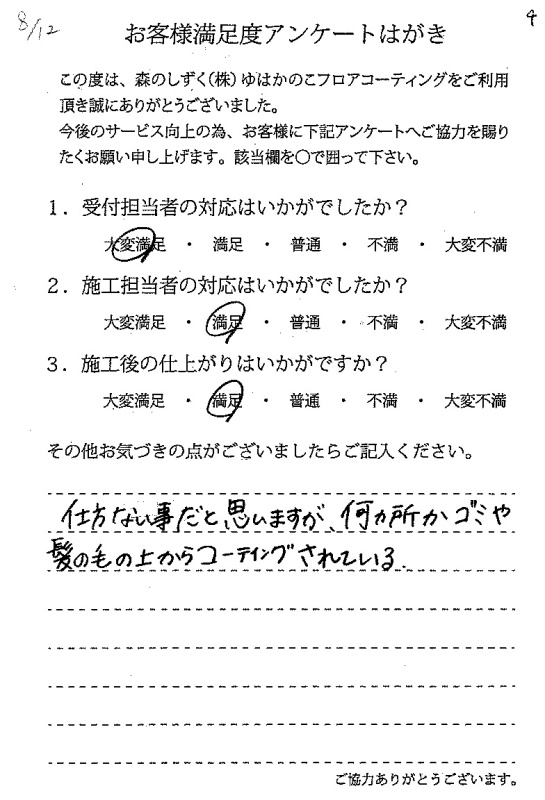 8/12
4
お客様満足度アンケートはがき
この度は、森のしずく(株)ゆはかのこフロアコーティングをご利用
頂き誠にありがとうございました。
今後のサービス向上の為、お客様に下記アンケートへご協力を賜り
たくお願い申し上げます。該当欄を〇で囲って下さい。
1．受付担当者の対応はいかがでしたか？
大変満足 ・ 満足 ・ 普通 ・ 不満 ・ 大変不満
2．施工担当者の対応はいかがでしたか？
大変満足 ・ 満足 ・ 普通 ・ 不満 ・ 大変不満
3．施工後の仕上がりはいかがですか？
大変満足 ・ 満足 ・ 普通 ・ 不満 ・ 大変不満
その他お気づきの点がございましたらご記入ください。
仕方ない事だと思いますが、何カ所かゴミや
髪の毛の上からコーティングされている.
ご協力ありがとうございます。